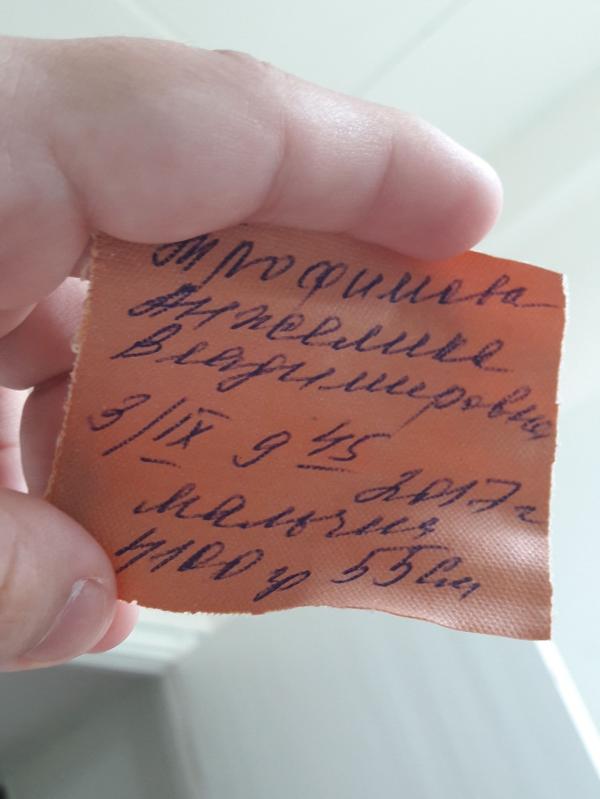 Трофимова
Анжелика
Владимировна
3/IX 9 45 2017г
мальчик
4100 гр 55см